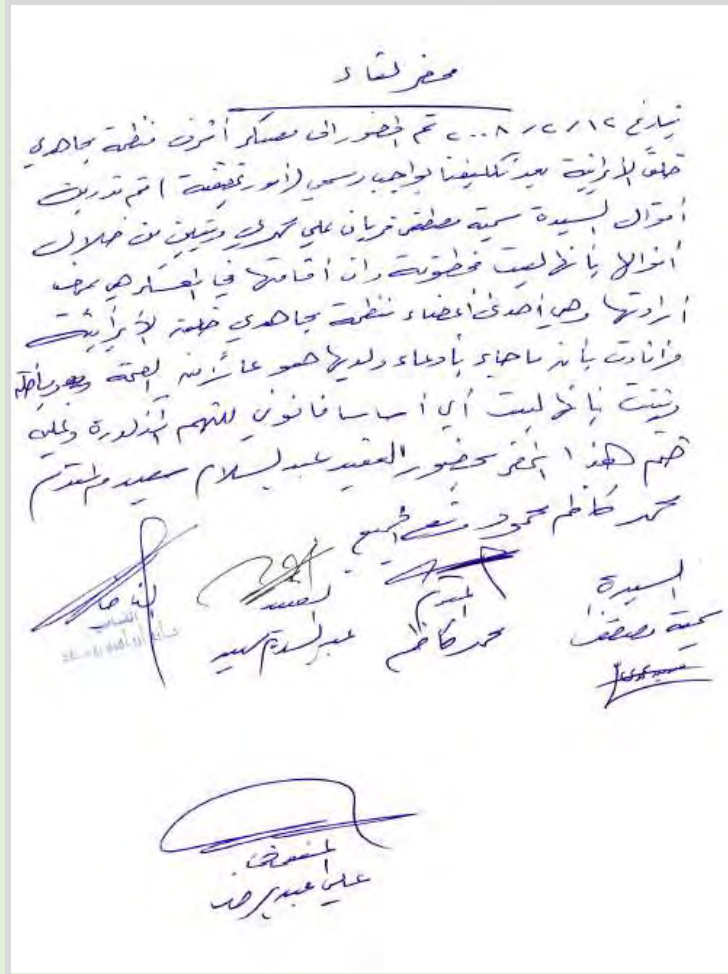 محضر لقاء
بتاريخ ١٢ / ٢ / ٢٠٠٨ تم الحضور الى معسكر أشرف منظمة مجاهدي
خلق الأيرانية بعد تكليفنا بواجب رسمي (أمور تحقيقية) تم تدوين
أقوال السيدة سمية مصطفى قربان علي محمدي وتبين من خلال
أقوالها بأنها ليست مخطوفة وان أقامتها في المعسكر هي بمحض
أرادتها وهي أحدى أعضاء منظمة مجاهدي خلق الأيرانية
وأفادت بأن ماجاء بأدعاء والديها هو عار من الصحة
وتبينت بأنها ليست أي أساسا قانوني للتهم المذكورة وعليه
ختم هذا المحضر بحضور العقيد عبد السلام سعيد والمقدم
محمد كاظم محمود الجميع
السيدة
سمية مصطفى
المقدم
محمد كاظم
العقيد
عبد السلام سعيد
القاضي
المفوض
علي عبد